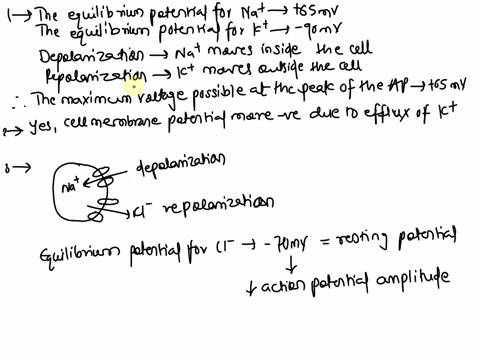 1→ The equilibrium potential for Na⁺ → +65mV
The equilibrium potential for K⁺ → -90mV
Depolarization → Na⁺ moves inside the cell
Repolarization → K⁺ moves outside the cell
∴ The maximum voltage possible at the peak of the AP → +65 mV
2→ Yes, cell membrane potential more -ve due to efflux of K⁺
3→
depolarization
Na⁺
Cl⁻ repolarization
Equilibrium potential for Cl⁻ → -70mV = resting potential
↓
↓ action potential amplitude